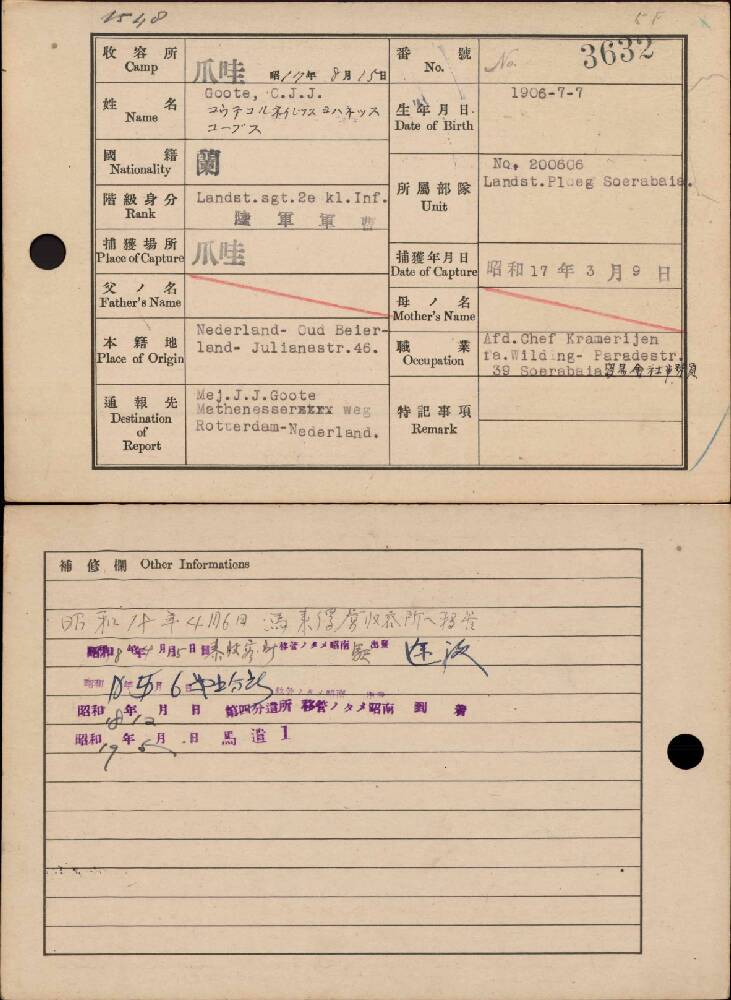 1548
收容所 Camp 爪哇 昭17年8月15日 番號 No. No. 3632
姓名 Name Goote, C.J.J.
生年月日 Date of Birth 1906-7-7
國籍 Nationality 蘭
所屬部隊 Unit No. 200606
Landst.Ploeg Soerabaia.
階級身分 Rank Landst.sgt.2e kl.Inf.
陸軍軍曹
捕獲場所 Place of Capture 爪哇 捕獲年月日 Date of Capture 昭和17年3月9日
父ノ名 Father's Name 母ノ名 Mother's Name
本籍地 Place of Origin Nederland- Oud Beier-
land- Julianastr.46.
職業 Occupation Afd.Chef Kramerijen
fa.Wilding- Paradestr.
39 Soerabaia
通報先 Destination of Report Mej.J.J.Goote
Mathenesser weg
Rotterdam-Nederland.
特記事項 Remark
補修欄 Other Informations
昭和 年4月6日 馬來俘虜收容所ヘ移管
昭和18年 月 日 移管ノタメ昭南 出發
昭和 年 月 移管ノタメ昭南
昭和18年12月 日 第四分遣所 移管ノタメ昭南 到着
昭和19年5月 日 馬遣1